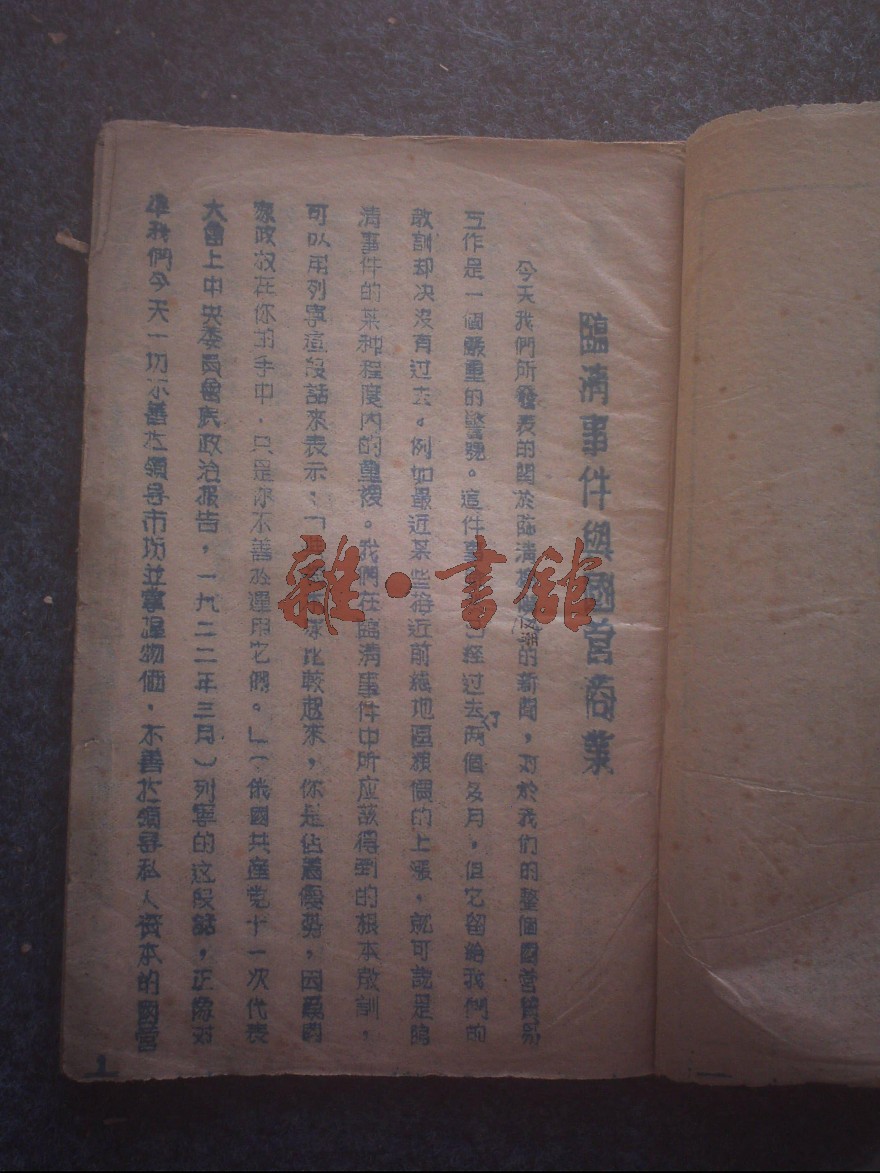 臨清事件與國营商業
今天我們所發表的關於臨清 的新聞，对於我們的整個國营貿易
工作是一個嚴重的警 。這件 经过去了两個多月，但它留給我們的
敎訓却决沒有过去。例如最近某些 近前綫地區粮價的上漲，就可説是臨
清事件的某种程度內的重 。我們在臨清事件中所应該得到的根本敎訓，
可以用列寧這段話來表示：「 比較起來，你是佔着優勢，因爲國
家政权在你的手中，只是你不善於運用它們。」（俄國共産党十一次代表
大會上中央委員會 政治报告，一九二二年三月）列寧的这段話，正像对
準我們今天一切不善於領导市场並掌握物価，不善於領导私人資本的國营
雜·書館
1